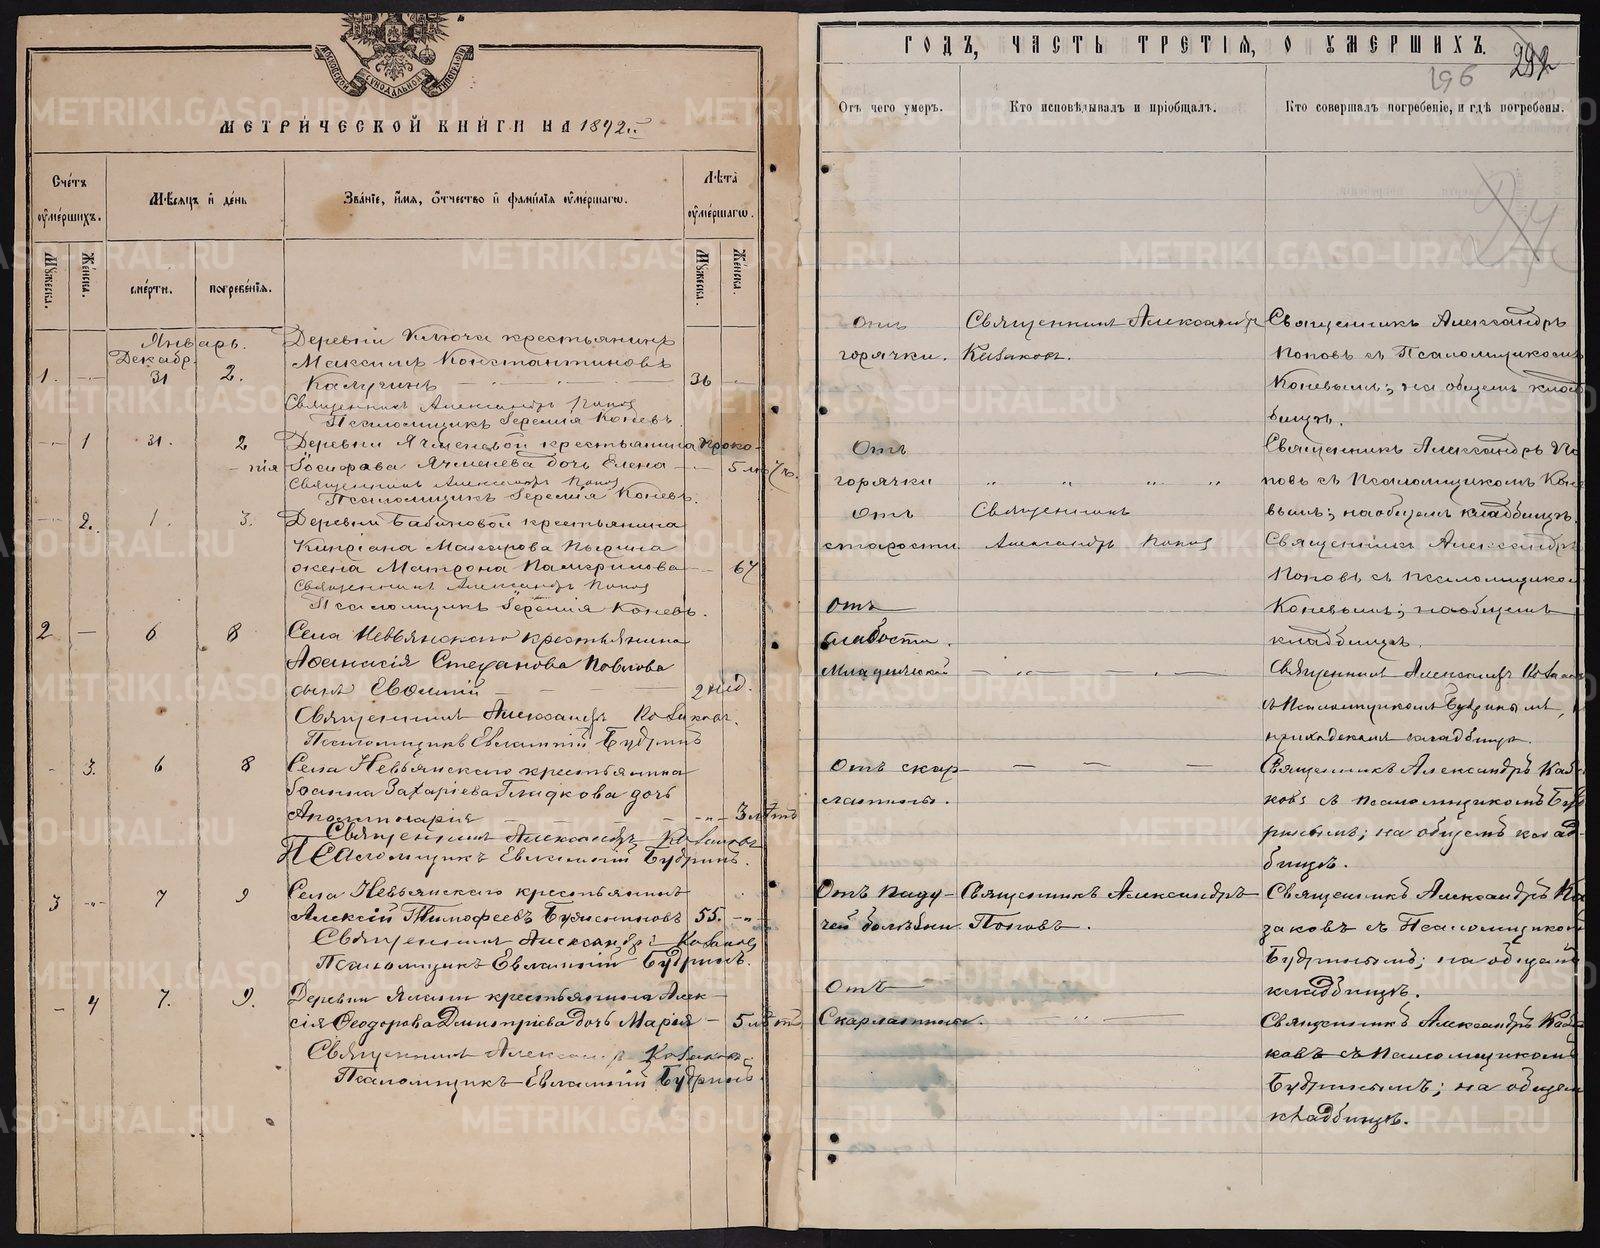 МОСКОВСКОЙ СѴНОДАЛЬНОЙ ТИПОГРАФІИ
МЕТРИЧЕСКОЙ КНИГИ НА 1892й
Счетъ умершихъ.
Мѣсяцъ и день
Званіе, имя, отчество и фамилія умершаго.
Лѣта умершаго.
Мужеска.
Женска.
смерти.
погребенія.
Мужеска.
Женска.
Январь.
Декабр.
1. 31 2.
Деревни Ключа крестьянинъ
Максимъ Константиновъ
Калугинъ 36
Священникъ Александръ Попов
Псаломщикъ Іеремія Коневъ.
1 31. 2 Деревни Ячменевой крестьянина Проко-
пія Ячменева дочь Елена 5
Священникъ Александръ Попов
Псаломщикъ Іеремія Коневъ.
2. 1. 3. Деревни Бабиновой крестьянина
Кипріана
жена Матрона 67
Священникъ Александръ Попов
Псаломщикъ Іеремія Коневъ.
2 6 8 Села Невьянскаго крестьянина
Аѳанасія Степанова
сынъ Евѳимій 2 нед.
Священникъ Александръ Козаковъ.
Псаломщикъ Евлампій Будринъ
3. 6 8 Села Невьянскаго крестьянина
Іоанна Захаріева Гладкова дочь
Аполинарія 3 лѣтъ
Священникъ Александръ Козаковъ
Псаломщикъ Евлампій Будринъ.
3 7 9 Села Невьянскаго крестьянинъ
Алексій Тимофеевъ 55.
Священникъ Александръ Козаковъ
Псаломщикъ Евлампій Будринъ.
4 7. 9. Деревни крестьянина Алек-
сія Ѳеодорова Димитріева дочь Марія 5 лѣтъ
Священникъ Александръ Козаковъ.
Псаломщикъ Евлампій Будринъ.
ГОДЪ, ЧАСТЬ ТРЕТІЯ, О УМЕРШИХЪ.
196
Отъ чего умеръ.
Кто исповѣдывалъ и пріобщалъ.
Кто совершалъ погребеніе, и гдѣ погребены.
Отъ
горячки.
Священникъ Александръ
Козаковъ.
Священникъ Александръ
Поповъ съ Псаломщикомъ
Коневымъ; на общемъ клад
бищѣ.
Отъ
горячки
Священникъ Александръ По
повъ съ Псаломщикомъ Коне
вымъ; на общемъ кладбищѣ.
Отъ
старости.
Священникъ
Александръ Попов
Священникъ Александръ
Поповъ съ псаломщикомъ
Коневымъ; на общемъ
кладбищѣ.
Отъ
слабости.
младенческой
Священникъ Александръ Козаковъ
съ Псаломщикомъ Будринымъ,
приходскомъ кладбищѣ.
Отъ скар-
латины.
Священникъ Александръ Каза
ковъ съ псаломщикомъ Буд
ринымъ; на общемъ клад-
бищѣ.
Отъ паду-
чей болѣзни
Священникъ Александръ
Поповъ.
Священникъ Александръ Ка
заковъ съ Псаломщикомъ
Будринымъ; на общемъ
кладбищѣ.
Отъ
Скарлатины.
Священникъ Александръ Каза
ковъ съ Псаломщикомъ
Будринымъ; на общемъ
кладбищѣ.
METRIKI.GASO-URAL.RU